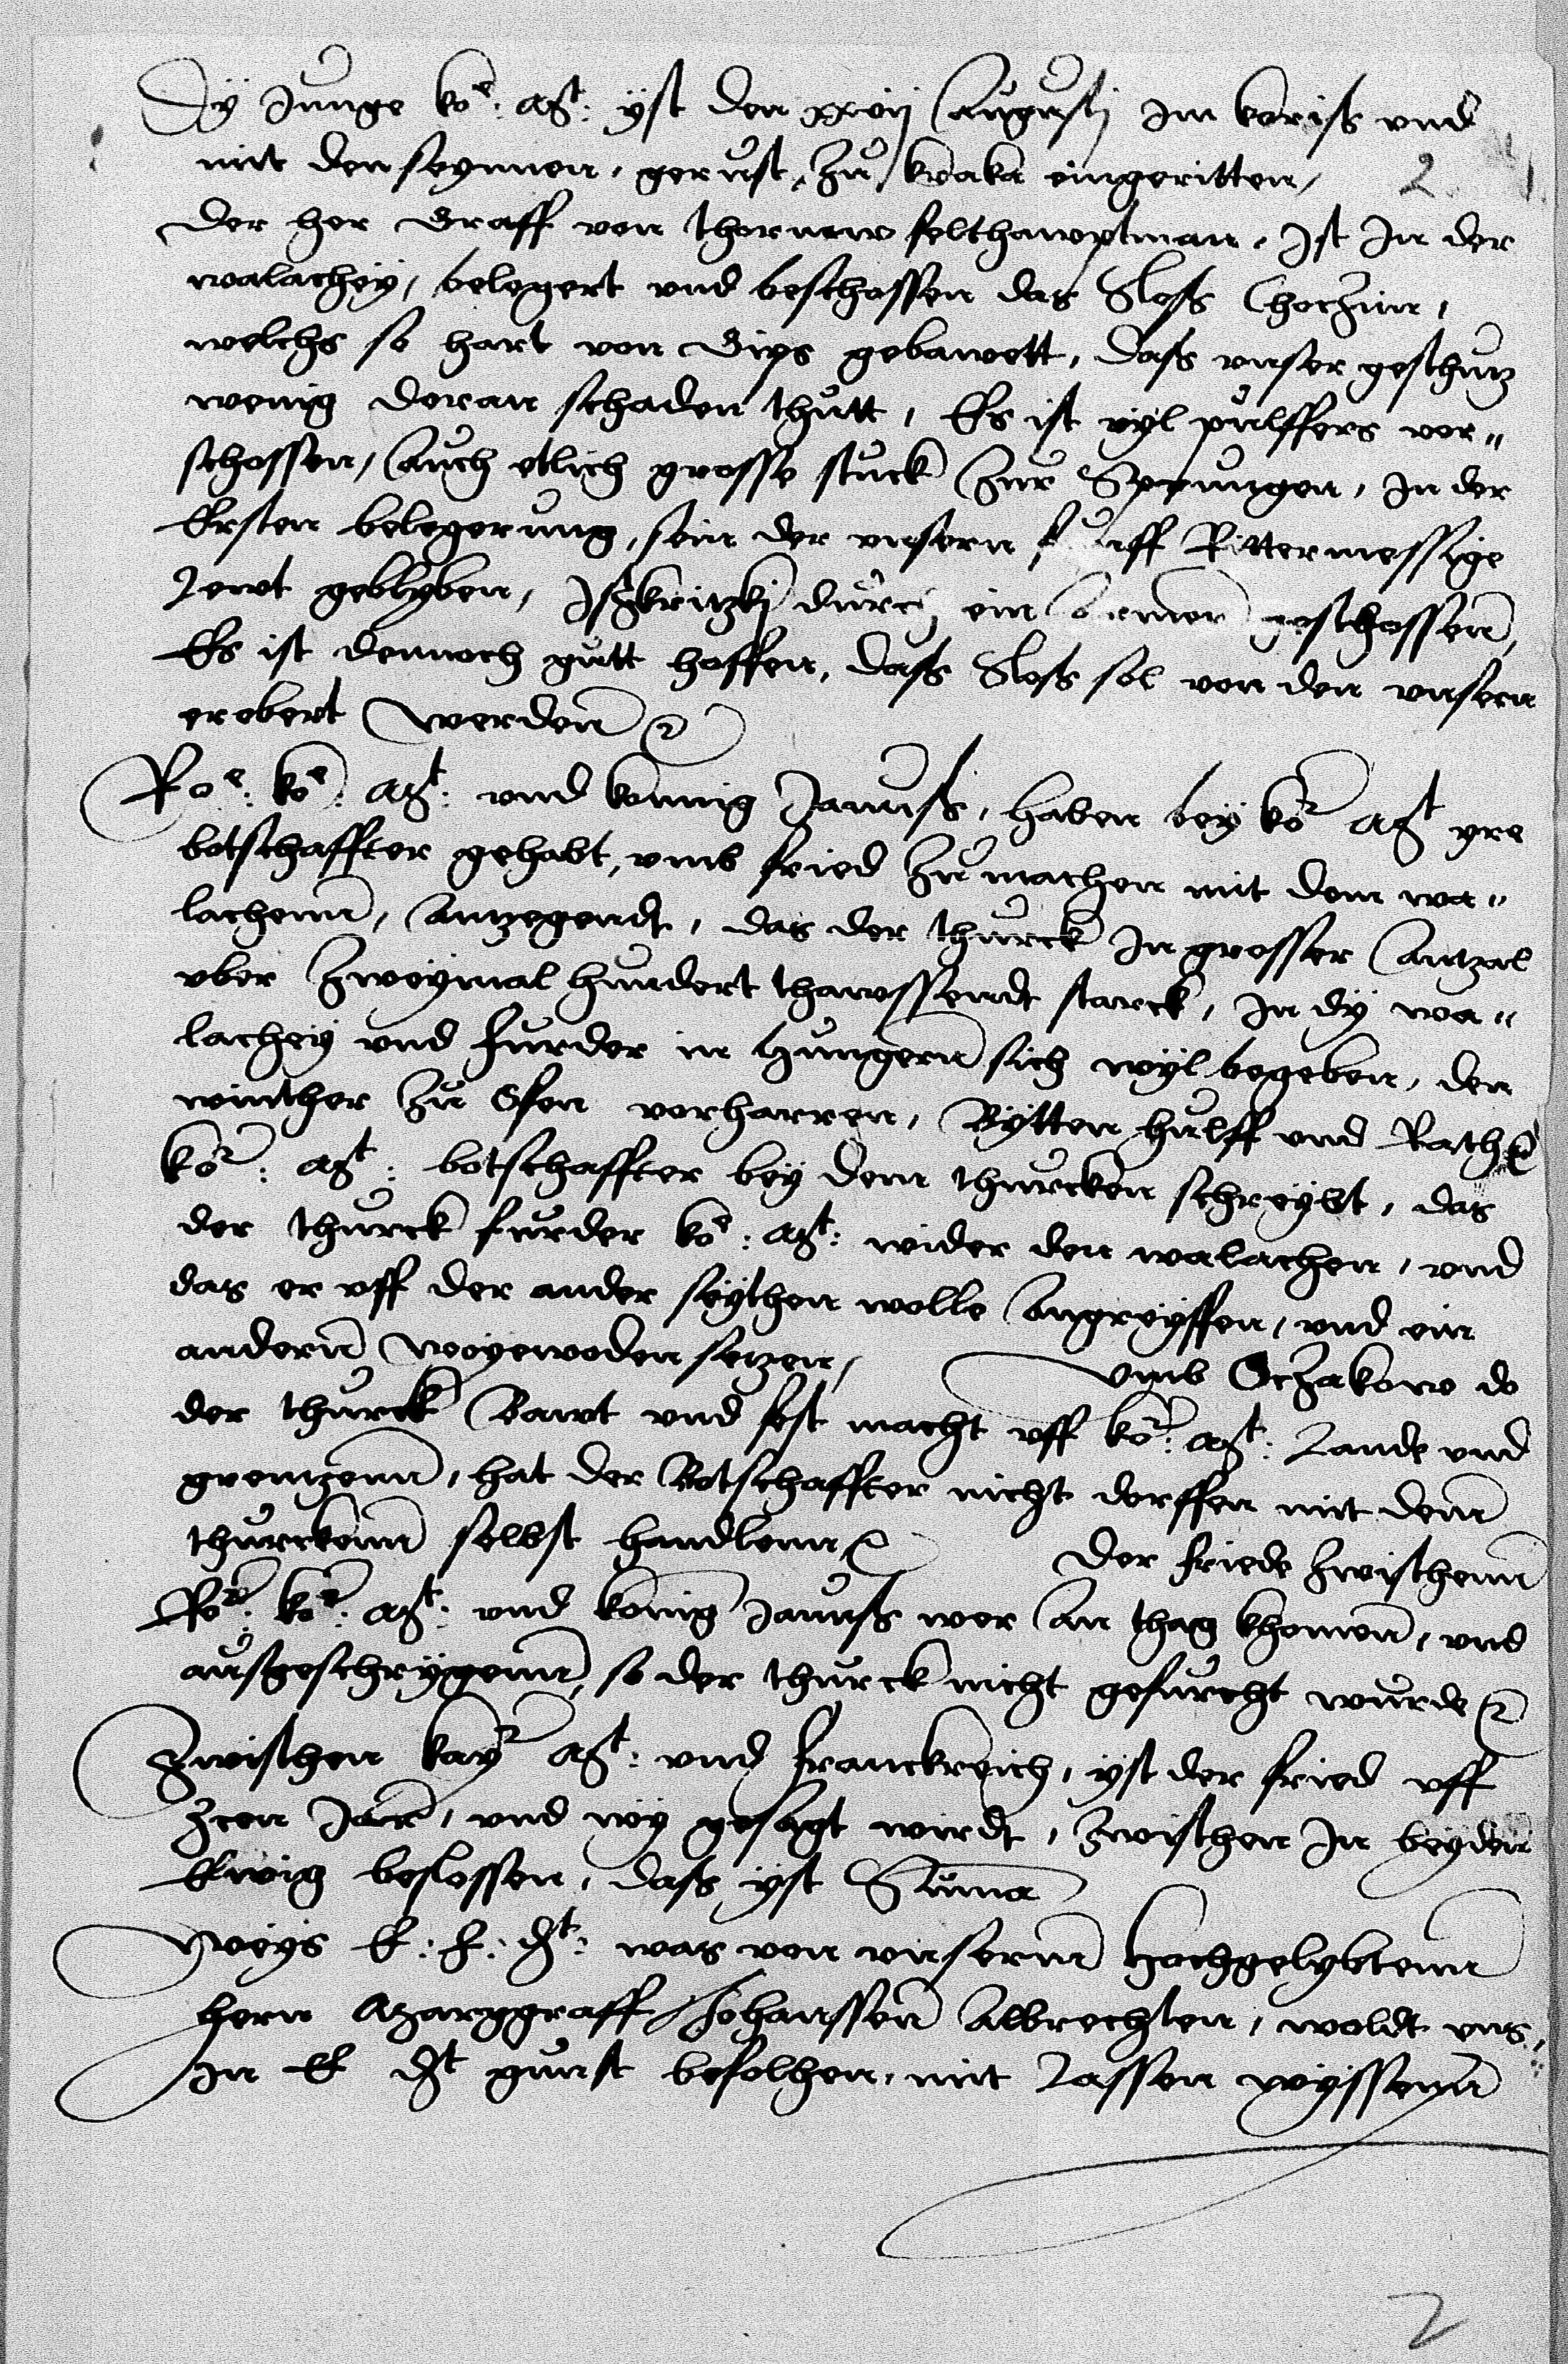 Dÿ Junge koe: Mt: ÿst den xxvij Augustj Im koriss vnd
mit den seynnen, gerust, zu kroka eingeritten,
2
Der her Graff von thornaw felthawptman, Ist In der
walacheÿ, belegert vnd beschossen das Sloss Choczim,
welchs so hart von Gips gebawett, dass vnser geschutz
wenig doran schaden thutt, Es ist vÿl pulffers vor"
schossen, Auch etlich grosse stuck Zur Sprungen, In der
Ersten belegerung, sein der vnsern Rittermessige
Lewt geblÿben, durch ein geschossen,
Es ist dennoch gutt hoffen, dass Sloss sol von den vnsern
erobert werden
Roe: koe: Mt: vnd konnig Januss, haben beÿ kor Mt yre
botschaffter gehabt, vmb fried zu machen mit dem wa"
lachenn, Antzegendt, das der thurck In grosser Antzal
vber Zweÿmal hundert thawssendt starck, In dÿ wa"
lacheÿ vnd furder in Hungern sich wÿl begeben, den
winther zu Ofen vorharren, Bÿtten hulff vnd Rath
kor: Mt: botschaffter beÿ dem thurcken schreÿbt, das
der thurck furder koe: Mt: wider den walachen, vnd
das er vff der ander seÿthen wolle Angreÿffen, vnd ein
andern woÿewoden setzen, vmb Oczakow do
der thurck Bawt vnd fest macht vff kor: Mt: Lande vnd
grentzenn, hat der Botschaffter nicht dorffen mit denn
thurckenn selbst handlenn Der friede zwischenn
Ror: kor: Mt: vnd konig Januss wer An thag khomen, vnd
aussgeschrÿgenn, so der thurck nicht gefurcht wurde
Zwischen kayr Mt: vnd Franckreich, ÿst der fried vff
zcen Jar, vnd wÿ gesagt wirdt, zwischen In beÿden
Ewig beslossen, dass ÿst Suma
Weÿs E: F: Dt: was von vnsernn Hochgelybtenn
hern Marggraff Johanssen Albrechten, woldt vns
In E Dt gunst befolhen, mit Lassen wÿssenn
2